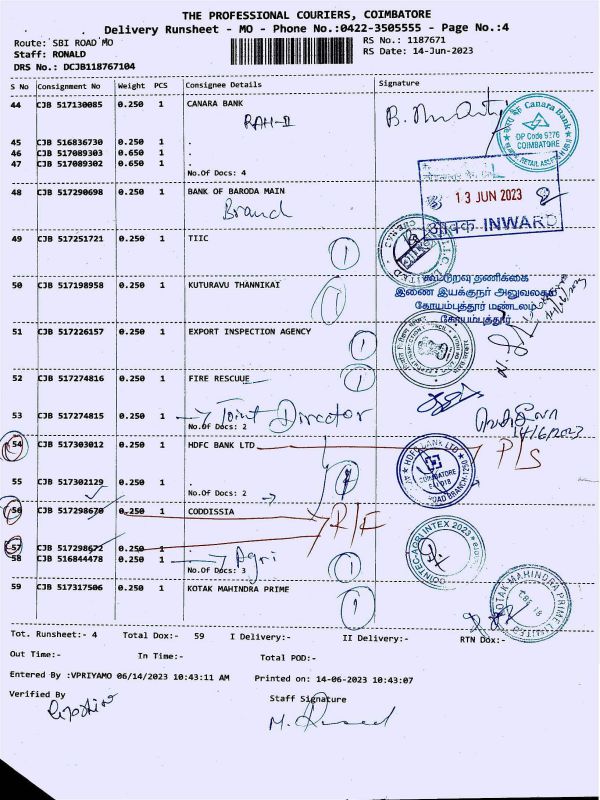 THE PROFESSIONAL COURIERS, COIMBATORE
Delivery Runsheet - MO - Phone No.:0422-3505555 - Page No.:4
Route: SBI ROAD MO
RS No.: 1187671
Staff: RONALD
RS Date: 14-Jun-2023
DRS No.: DCJB118767104
S No Consignment No Weight PCS Consignee Details Signature
44 CJB 517130085 0.250 1 CANARA BANK
RAH-II
Canara Bank
DP Code 9276
COIMBATORE
45 CJB 516836730 0.250 1 .
46 CJB 517089303 0.650 1 .
47 CJB 517089302 0.650 1 .
No.Of Docs: 4
48 CJB 517290698 0.250 1 BANK OF BARODA MAIN
Brand
13 JUN 2023
आवक INWARD
49 CJB 517251721 0.250 1 TIIC
1
50 CJB 517198958 0.250 1 KUTURAVU THANNIKAI
1
கூட்டுறவு தணிக்கை
இணை இயக்குநர் அலுவலகம்
கோயம்புத்தூர் மண்டலம்
கோயம்புத்தூர்.
51 CJB 517226157 0.250 1 EXPORT INSPECTION AGENCY
1
52 CJB 517274816 0.250 1 FIRE RESCUUE
1
53 CJB 517274815 0.250 1 → Joint Director
No.Of Docs: 2
14/6/2023
54 CJB 517303012 0.250 1 HDFC BANK LTD
P/S
HDFC BANK LTD
COIMBATORE
55 CJB 517302129 0.250 1 .
No.Of Docs: 2
56 CJB 517298670 0.250 1 CODDISSIA
R/F
57 CJB 517298672 0.250 1 .
58 CJB 516844478 0.250 1 → Agri
No.Of Docs: 3
1
CODINTEC-AGRI INTEX 2023
59 CJB 517317506 0.250 1 KOTAK MAHINDRA PRIME
1
KOTAK MAHINDRA PRIME LIMITED
CBE 18
Tot. Runsheet:- 4 Total Dox:- 59 I Delivery:- II Delivery:- RTN Dox:-
Out Time:- In Time:- Total POD:-
Entered By :VPRIYAMO 06/14/2023 10:43:11 AM Printed on: 14-06-2023 10:43:07
Verified By
Staff Signature